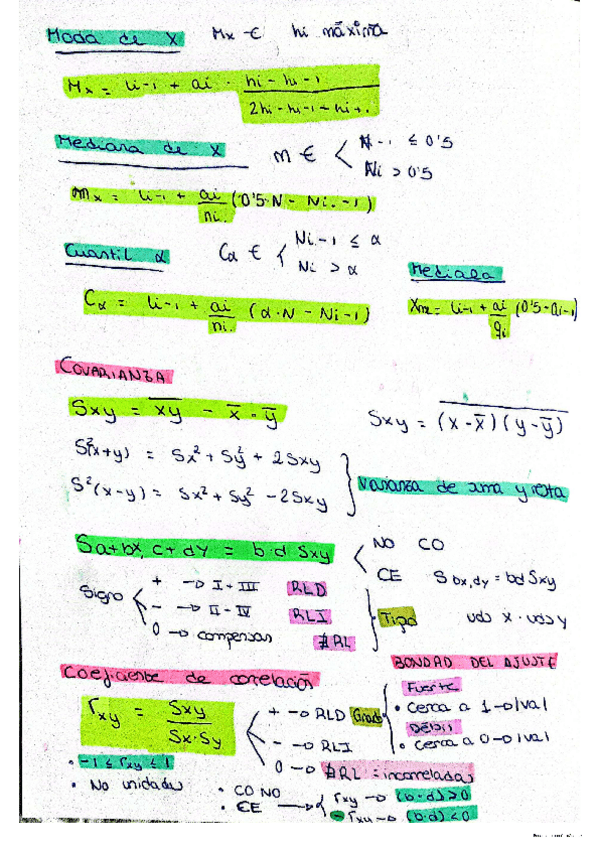 Moda de X Mx ∈ hi máxima
Mx = li-1 + ai · (hi - hi-1) / (2hi - hi-1 - hi+1)
Mediana de X m ∈ < N-1 ≤ 0'5
Ni > 0'5
mx = li-1 + ai/ni. (0'5·N - Ni.-1)
Cuantil α Cα ∈ { Ni.-1 ≤ α
Ni > α
Mediala
Cα = li-1 + ai/ni. (α·N - Ni-1)
Xme = li-1 + ai/qi (0'5 - Qi-1)
COVARIANZA
Sxy = x̅y̅ - x̅ · y̅
Sxy = (x - x̅)(y - y̅)
S²(x+y) = Sx² + Sy² + 2Sxy
S²(x-y) = Sx² + Sy² - 2Sxy
Varianza de suma y resta
Sa+bX, c+dY = b·d Sxy < NO CO
CE S bx,dy = bd Sxy
Signo < + → I - III RLD
- → II - IV RLI
0 → compensan ∄RL
Tipo
uds x · uds y
Coeficiente de correlación
BONDAD DEL AJUSTE
rxy = Sxy / Sx·Sy
+ → RLD Grado
- → RLI
0 → ∄RL = incorreladas
Fuerte
• Cerca a 1 → |val
Débil
• Cerca a 0 → |val
• -1 ≤ rxy ≤ 1
• No unidades
• CO NO
• CE → { rxy → (b·d) > 0
- rxy → (b·d) < 0